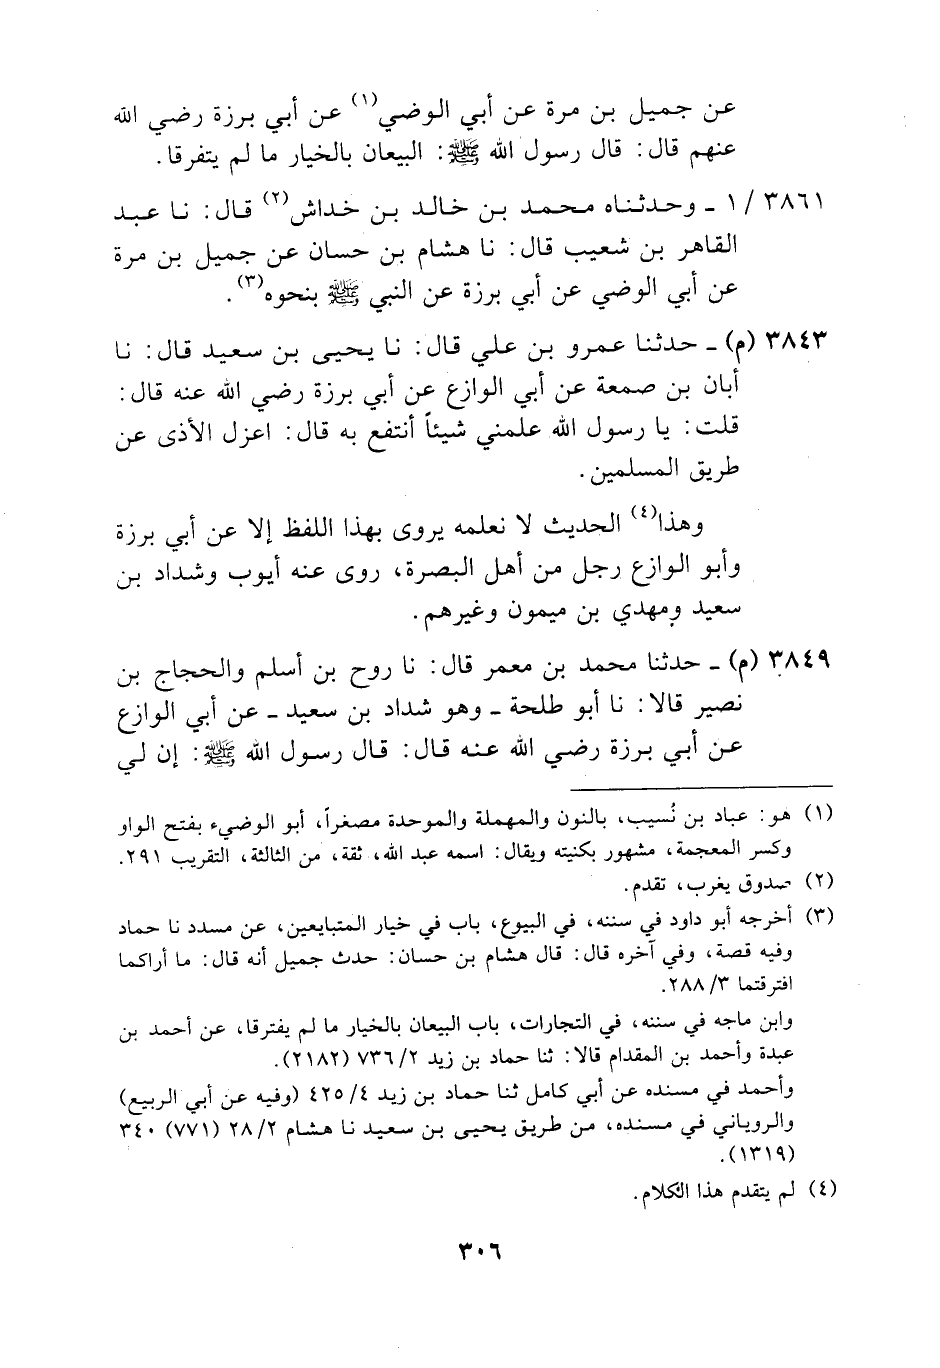 عن جميل بن مرة عن أبي الوضي(١) عن أبي برزة رضي الله
عنهم قال: قال رسول الله ﷺ: البيعان بالخيار ما لم يتفرقا.
٣٨٦١ / ١ ـ وحدثناه محمد بن خالد بن خداش(٢) قال: نا عبد
القاهر بن شعيب قال: نا هشام بن حسان عن جميل بن مرة
عن أبي الوضي عن أبي برزة عن النبي ﷺ بنحوه(٣).
٣٨٤٣ (م) ـ حدثنا عمرو بن علي قال: نا يحيى بن سعيد قال: نا
أبان بن صمعة عن أبي الوازع عن أبي برزة رضي الله عنه قال:
قلت: يا رسول الله علمني شيئاً أنتفع به قال: اعزل الأذى عن
طريق المسلمين.
وهذا(٤) الحديث لا نعلمه يروى بهذا اللفظ إلا عن أبي برزة
وأبو الوازع رجل من أهل البصرة، روى عنه أيوب وشداد بن
سعيد ومهدي بن ميمون وغيرهم.
٣٨٤٩ (م) ـ حدثنا محمد بن معمر قال: نا روح بن أسلم والحجاج بن
نصير قالا: نا أبو طلحة ـ وهو شداد بن سعيد ـ عن أبي الوازع
عن أبي برزة رضي الله عنه قال: قال رسول الله ﷺ: إن لي
(١) هو: عباد بن نُسيب، بالنون والمهملة والموحدة مصغراً، أبو الوضيء بفتح الواو
وكسر المعجمة، مشهور بكنيته ويقال: اسمه عبد الله، ثقة، من الثالثة، التقريب ٢٩١.
(٢) صدوق يغرب، تقدم.
(٣) أخرجه أبو داود في سننه، في البيوع، باب في خيار المتبايعين، عن مسدد نا حماد
وفيه قصة، وفي آخره قال: قال هشام بن حسان: حدث جميل أنه قال: ما أراكما
افترقتما ٣/ ٢٨٨.
وابن ماجه في سننه، في التجارات، باب البيعان بالخيار ما لم يفترقا، عن أحمد بن
عبدة وأحمد بن المقدام قالا: ثنا حماد بن زيد ٢/ ٧٣٦ (٢١٨٢).
وأحمد في مسنده عن أبي كامل ثنا حماد بن زيد ٤/ ٤٢٥ (وفيه عن أبي الربيع)
والروياني في مسنده، من طريق يحيى بن سعيد نا هشام ٢/ ٢٨ (٧٧١) ٣٤٠
(١٣١٩).
(٤) لم يتقدم هذا الكلام.
٣٠٦